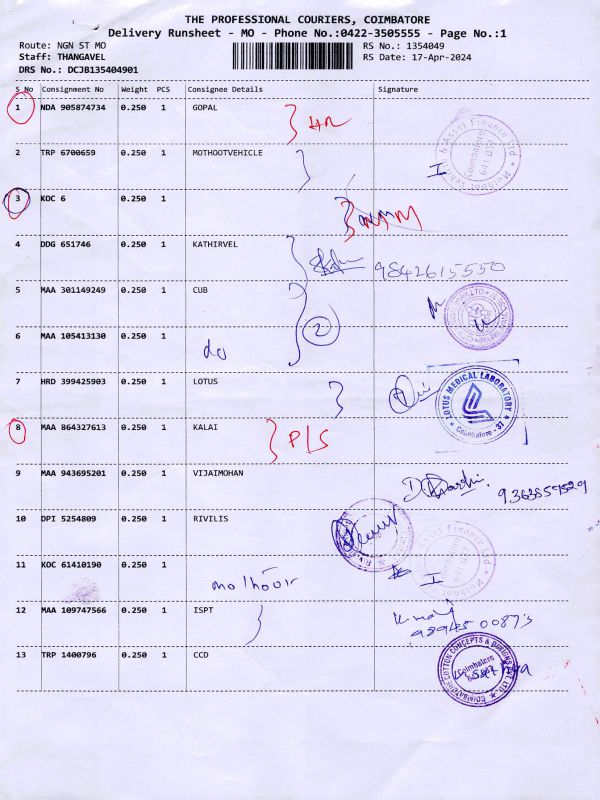 THE PROFESSIONAL COURIERS, COIMBATORE
Delivery Runsheet - MO - Phone No.:0422-3505555 - Page No.:1
Route: NGN ST MO RS No.: 1354049
Staff: THANGAVEL RS Date: 17-Apr-2024
DRS No.: DCJB135404901
S No Consignment No Weight PCS Consignee Details Signature
1 NDA 905874734 0.250 1 GOPAL
2 TRP 6700659 0.250 1 MOTHOOTVEHICLE
3 KOC 6 0.250 1
4 DDG 651746 0.250 1 KATHIRVEL
9842615550
5 MAA 301149249 0.250 1 CUB
2
6 MAA 105413130 0.250 1
do
7 HRD 399425903 0.250 1 LOTUS
LOTUS MEDICAL LABORATORY
Coimbatore - 37
8 MAA 864327613 0.250 1 KALAI
P/S
9 MAA 943695201 0.250 1 VIJAIMOHAN
10 DPI 5254809 0.250 1 RIVILIS
11 KOC 61410190 0.250 1
12 MAA 109747566 0.250 1 ISPT
9894500873
13 TRP 1400796 0.250 1 CCD
Coimbatore